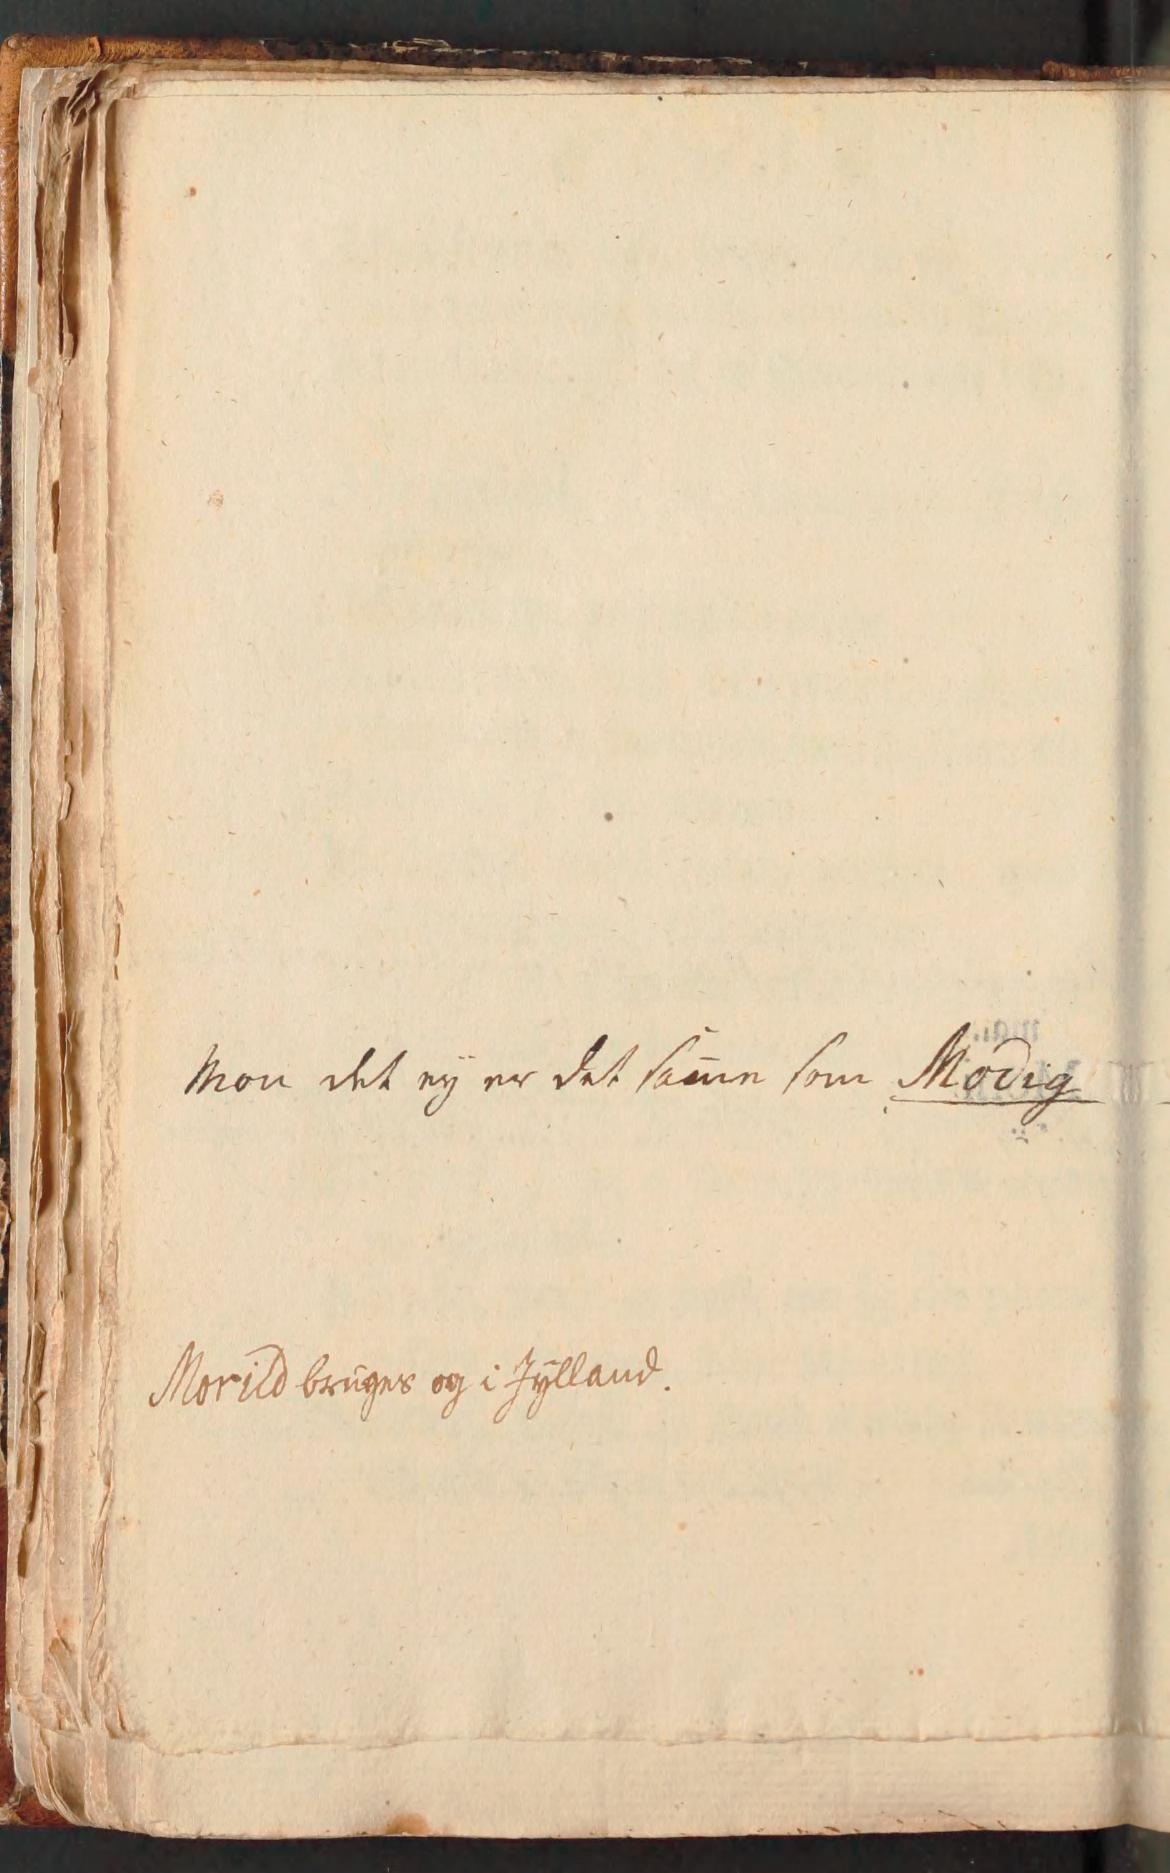 Mon det eÿ er det sam̄e som Modig
Morild bruges og i Jÿlland.